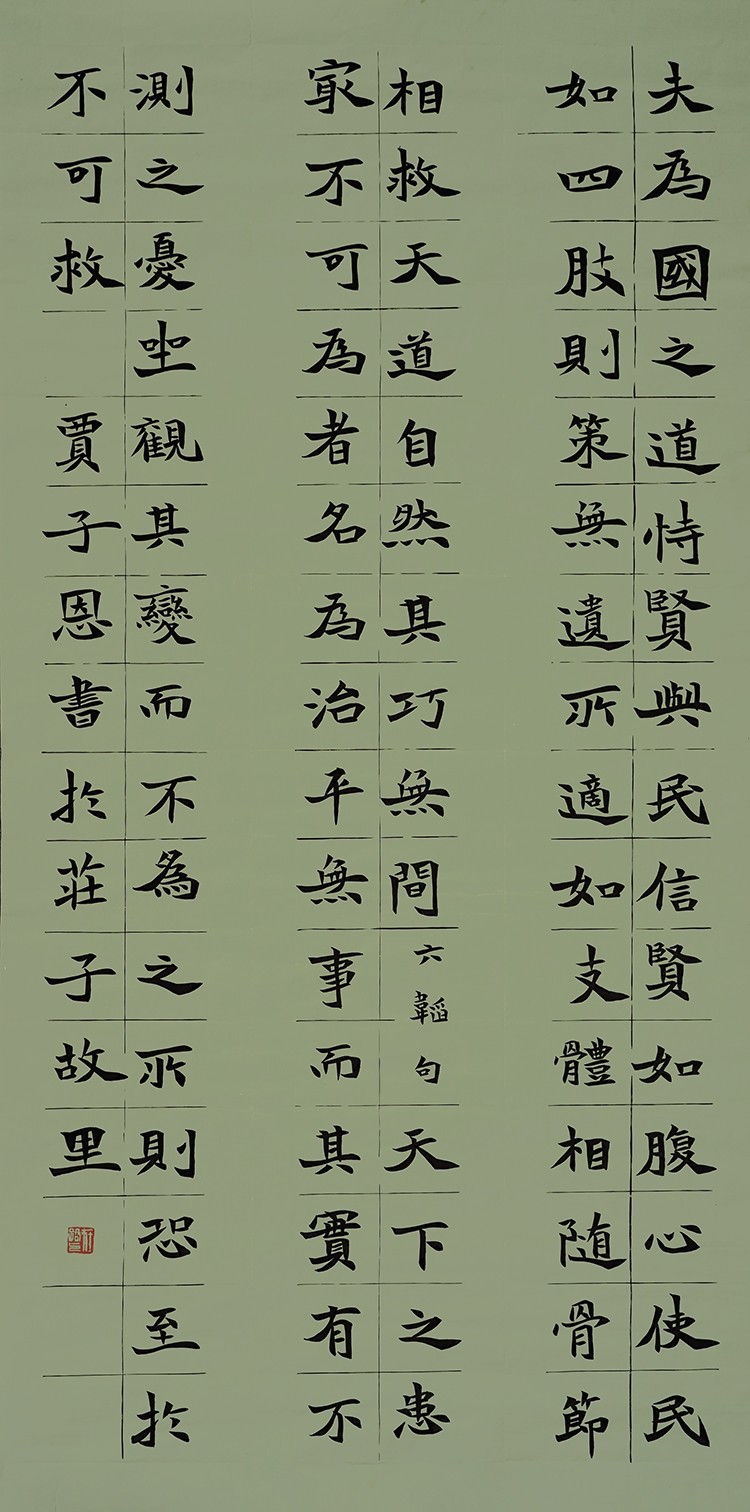 夫為國之道恃賢與民信賢如腹心使民
如四肢則策無遺所適如支體相随骨節
相救天道自然其巧無間六韜句天下之患
冣不可為者名為治平無事而其實有不
測之憂坐觀其變而不為之所則恐至於
不可救賈子恩書於莊子故里